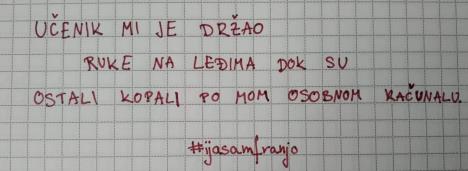 UČENIK MI JE DRŽAO
RUKE NA LEĐIMA DOK SU
OSTALI KOPALI PO MOM OSOBNOM RAČUNALU.
#ijasamfranjo